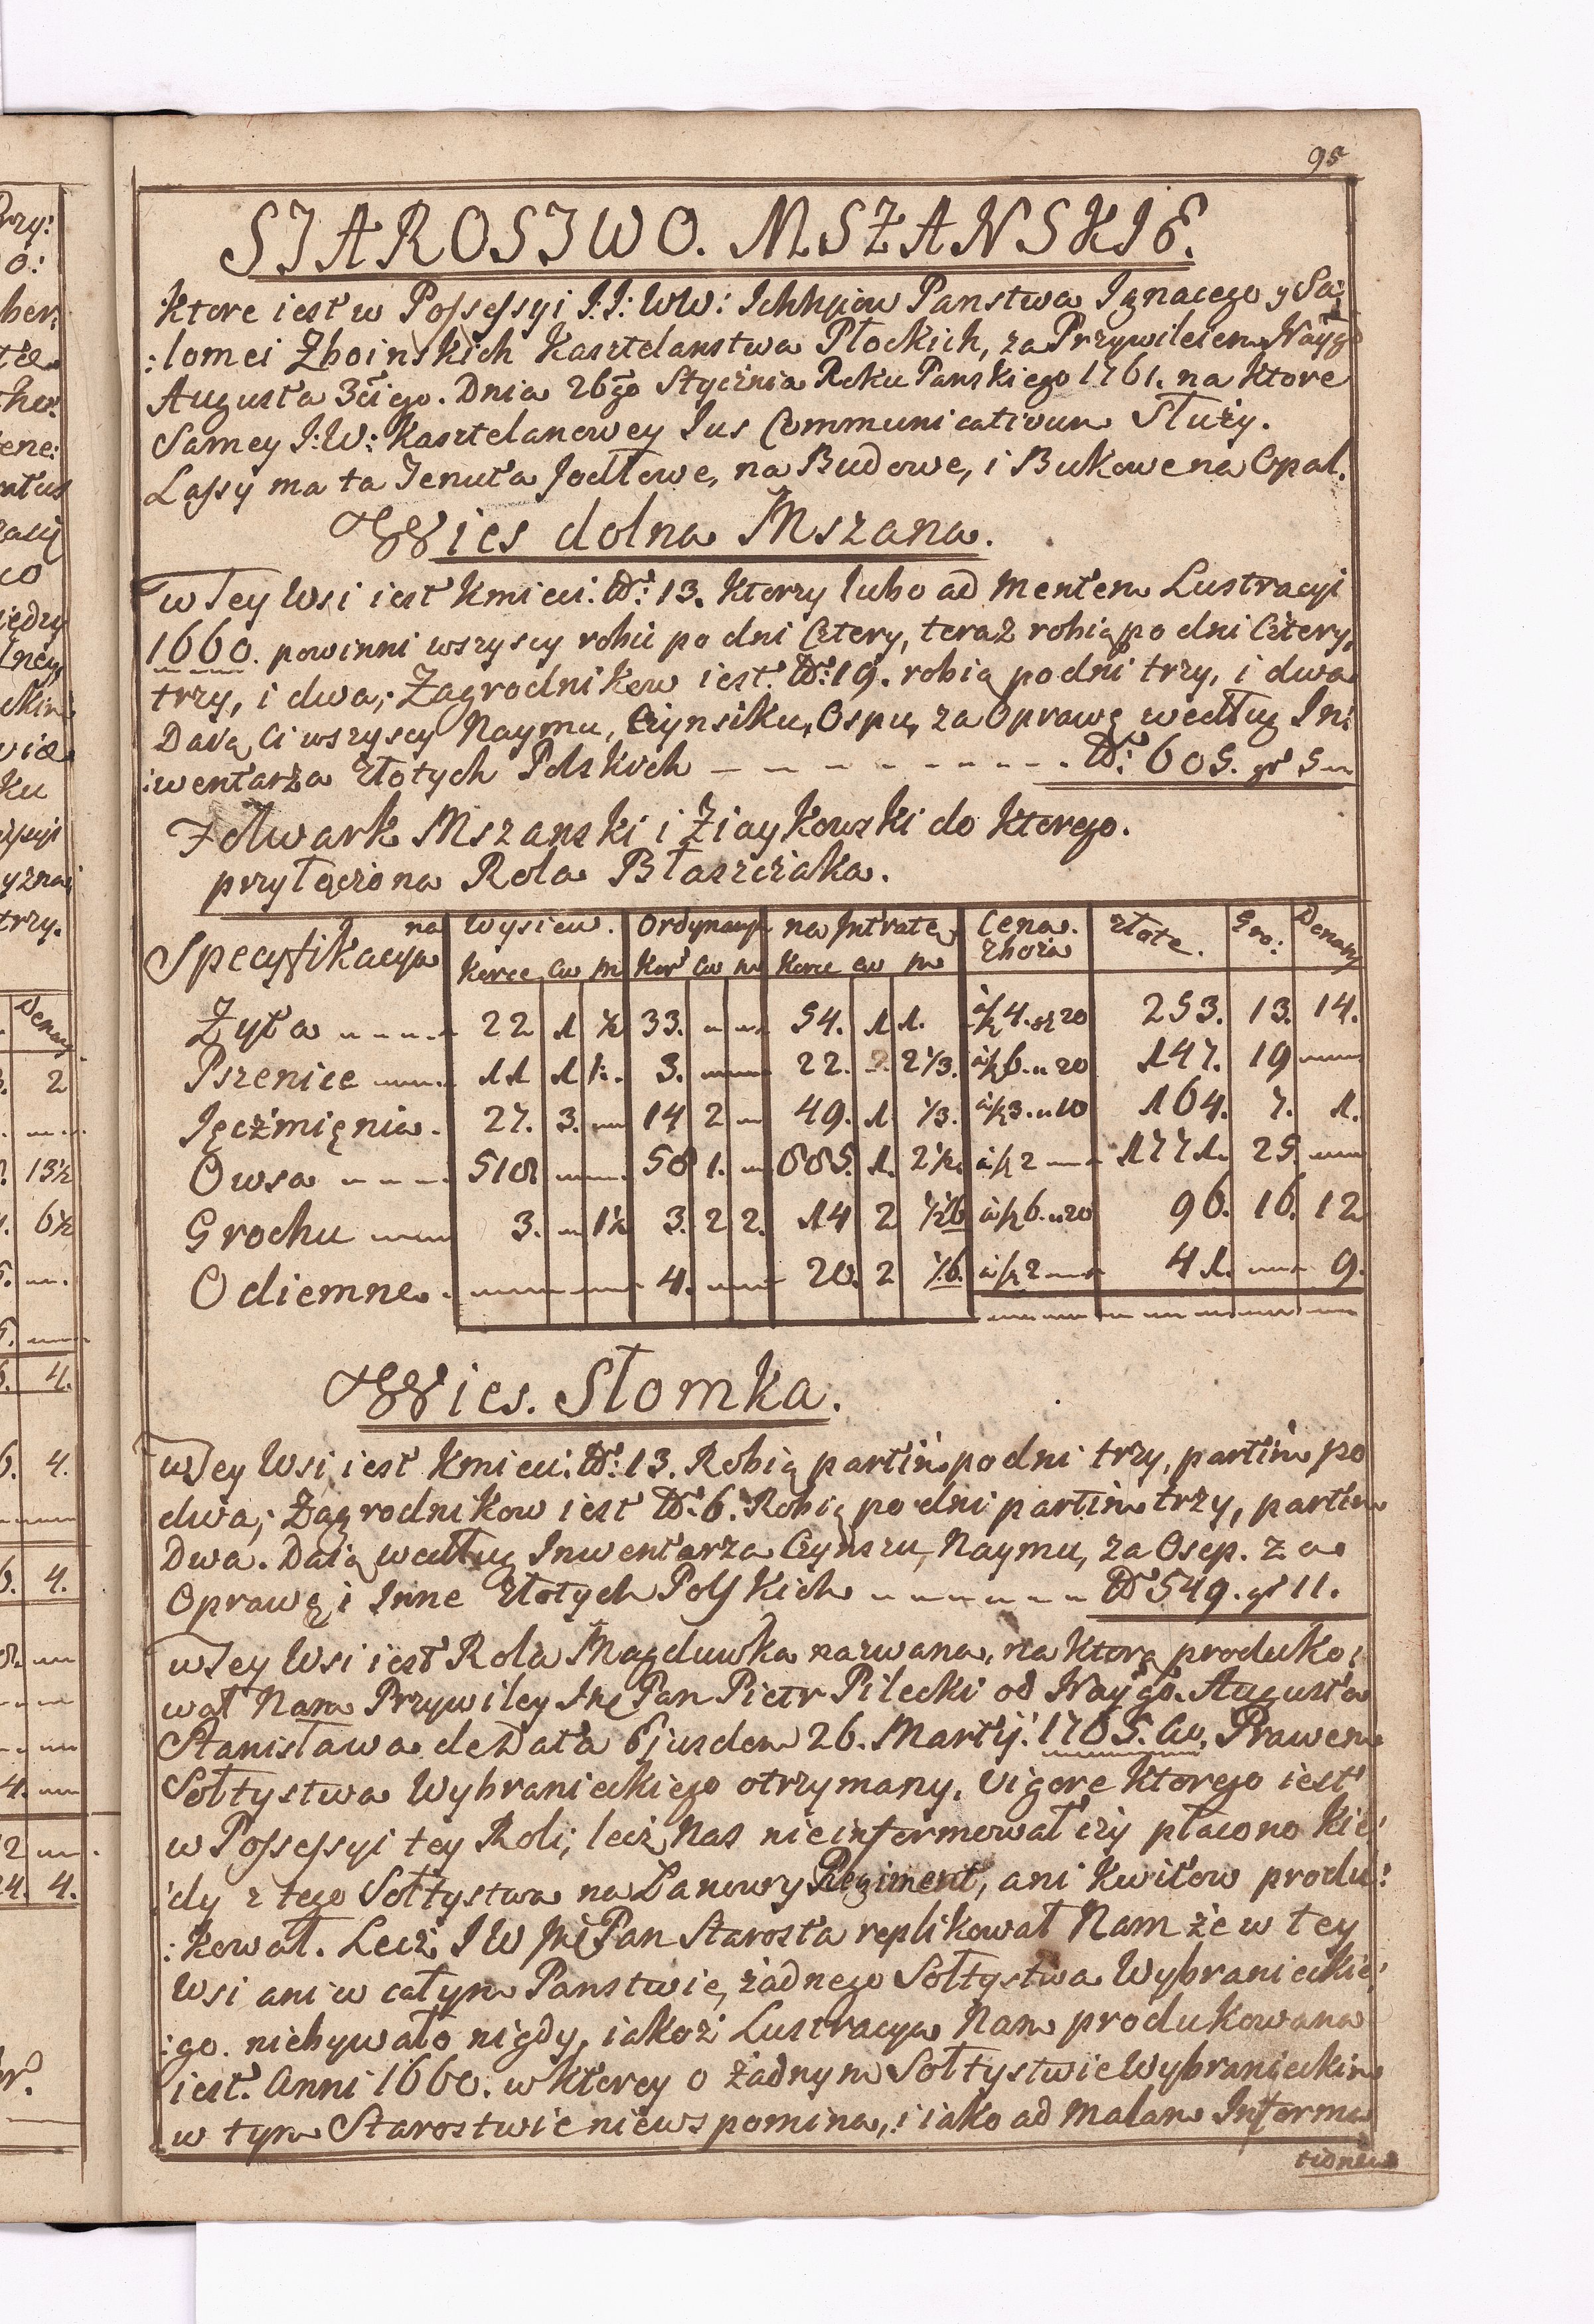 95
STAROSTWO. MSZANSKIE.
Ktore iest w Possessyi J:J: WW: Ichhmciow Panstwa Ignacego y Sa:
:lomei Zboinskich Kasztelanstwa Płockich, za Przywileiem Nayg
Augusta 3ciego. Dnia 26go Stycznia Roku Panskiego 1761. na Ktore
Samey J:W: Kasztelanowey Ius Communicativum Służy.
Lassy ma ta Tenuta Jodłowe, na Budowe, i Bukowe na Opał.
Wies dolna Mszana.
w Tey Wsi iest Kmieci. Nr: 13. Ktorzy lubo ad mentem Lustracyi
1660. powinni wszyscy robic po dni Cztery, teraz robią po dni Cztery,
trzy, i dwa; Zagrodnikow iest Nr: 19. robią po dni trzy, i dwa
Daią ci wszyscy Naymu, Czynsiku, Ospu, za Oprawę według In:
:wentarza Złotych Polskich – – – – – – – – – . Nr: 605. gr 5
Folwark Mszanski i Ziaykowski do Ktorego.
przyłączona Rola Błaszczaka.
Specyfikacya na Wysiew. Ordynaryi na Intratę Cena Zboża złote. Gro: Denary
Korce Cw m Kor Cw m Korce Cw m
Żyta 22 1 ½ 33. 54. 1 1. à f 4. gr 20 253. 13. 14.
Pszenice 11 1 3. 22. 2. 2 1/3. à f 6. 20 147. 19
Jęczmięnia. 27. 3. 14 2 49. 1 1/3. à f 3. 10 164. 7. 1.
Owsa 518 58 1. 885. 1. 2½ à f 2 1771. 25
Grochu 3. 1½ 3. 2 2. 14 2 à f 6. 20 96. 16. 12
Odiemne. 4. 20. 2 1/6. à f 2 41. 9.
Wies. Słomka.
w Tey Wsi iest Kmieci. Nr: 13. Robią partim po dni trzy, partim po
dwa; Zagrodnikow iest Nr: 6. Robią po dni partim trzy, partim
Dwa. Daią według Inwentarza Czynszu, Naymu, za Osep. za
Oprawę i Inne Złotych Polskich – – – – – – Nr 549. gr 11.
w Tey Wsi iest Rola Magduwka nazwana, na Ktorą produko:
wał Nam Przywiley Jmć Pan Pietr Pilecki od Naygo. Augusta
Stanisława de Data Ejusdem 26. Martij. 1765. Prawem
Sołtystwa Wybranieckiego otrzymany, Vigore Ktorego iest
w Possessyi tey Roli; lecz Nas nieinformował czy płacono Kie:
:dy z tego Sołtystwa na Łanowy Regiment, ani Kwitow produ:
:kował. Lecz JW Jmć Pan Starosta replikował Nam że w tey
Wsi ani w całym Panstwie, żadnego Sołtystwa Wybranieckie:
:go. niebywało nigdy, iakoż Lustracya Nam produkowana
iest Anni 1660. w Ktorey o żadnym Sołtystwie Wybranieckim
w tym Starostwie niewspomina, i iako ad malam Informa
tionem